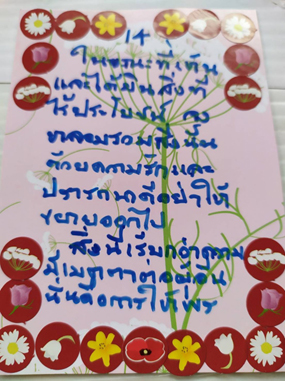 14
ในขณะที่เห็น
และได้ยินสิ่งที่
ไร้ประโยชน์ จง
หลอมรวมสิ่งนั้น
ด้วยความรักและ
ปรารถนาดีอย่าให้
ขยายออกไป
สิ่งนี้เรียกว่าความ
มีเมตตาต่อผู้อื่น
นั่นคือการให้พร